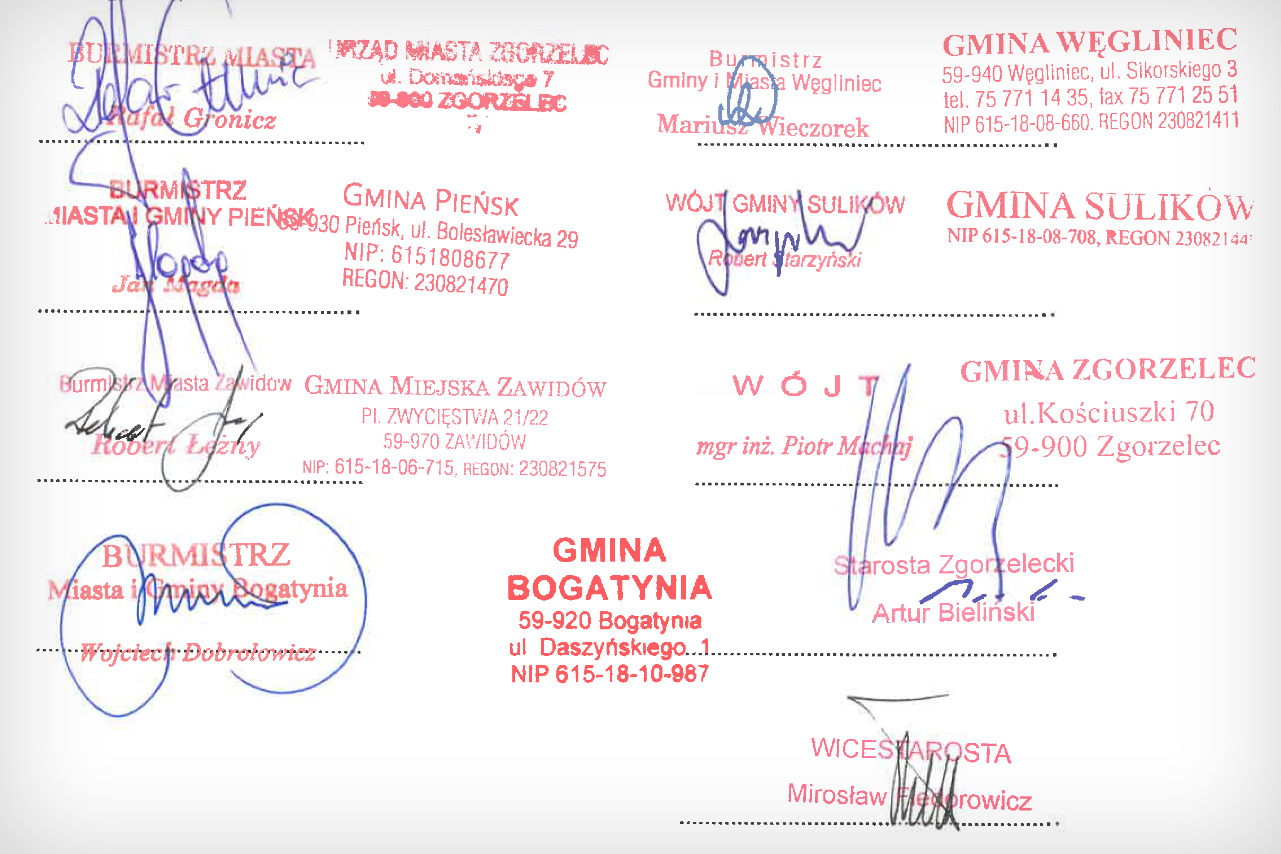 BURMISTRZ MIASTA
Rafał Gronicz
URZĄD MIASTA ZGORZELEC
ul. Domańskiego 7
59-900 ZGORZELEC
Burmistrz
Gminy i Miasta Węgliniec
Mariusz Wieczorek
GMINA WĘGLINIEC
59-940 Węgliniec, ul. Sikorskiego 3
tel. 75 771 14 35, fax 75 771 25 51
NIP 615-18-08-660. REGON 230821411
BURMISTRZ
MIASTA I GMINY PIEŃSK
Jan Magda
GMINA PIEŃSK
59-930 Pieńsk, ul. Bolesławiecka 29
NIP: 6151808677
REGON: 230821470
WÓJT GMINY SULIKÓW
Robert Starzyński
GMINA SULIKÓW
NIP 615-18-08-708, REGON
Burmistrz Miasta Zawidów
Robert Łężny
GMINA MIEJSKA ZAWIDÓW
Pl. ZWYCIĘSTWA 21/22
59-970 ZAWIDÓW
NIP: 615-18-06-715, REGON: 230821575
WÓJT
mgr inż. Piotr Machaj
GMINA ZGORZELEC
ul.Kościuszki 70
59-900 Zgorzelec
BURMISTRZ
Miasta i Gminy Bogatynia
Wojciech Dobrołowicz
GMINA
BOGATYNIA
59-920 Bogatynia
ul Daszyńskiego 1
NIP 615-18-10-987
Starosta Zgorzelecki
Artur Bieliński
WICESTAROSTA
Mirosław Fiedorowicz